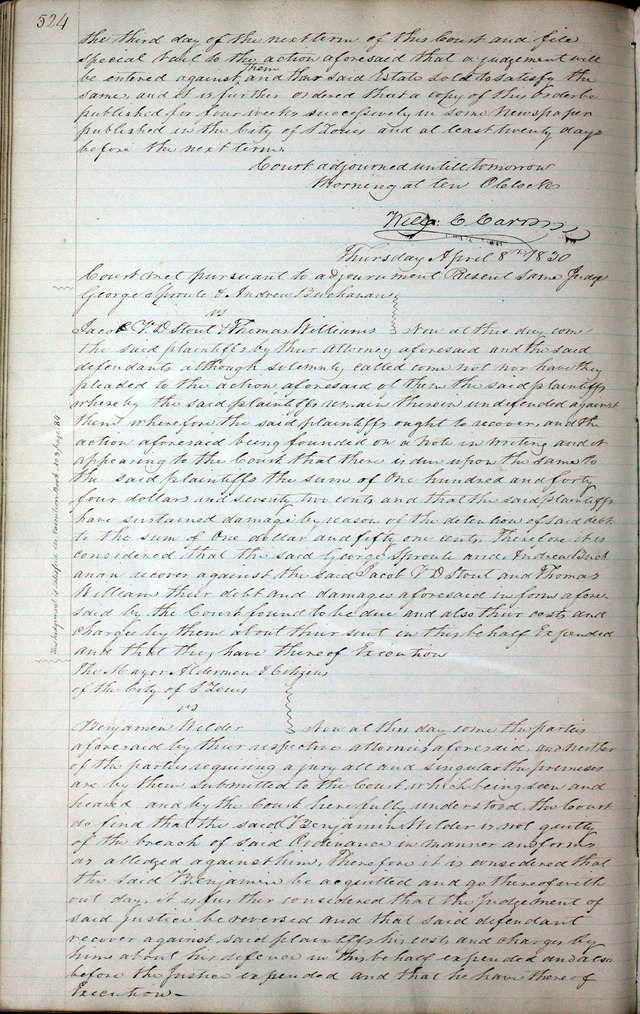 524
the third day of the next term of this Court and file
special bail to the action aforesaid that a judgement will
be entered against them and thar said Estate sold to satisfy the
same, and it is further ordered that a copy of this Order be
published for four weeks successively in some Newspaper
published in the City of St Louis and at least twenty days
before the next term.
Court adjourned untill tomorrow
Morning at ten OClock
Will: C Carr
Thursday April 8th 1830
Court met pursuant to adjournment Present same Judge
George Sproule & Andrew Buchanan
vs
Jacob V. D Stout & Thomas Williams Now at this day come
the said plaintiffs by their Attorney aforesaid and the said
defendants although solemnly called come not nor have they
pleaded to the action aforesaid of them the said plaintiffs
whereby the said plaintiffs remain therein undefended against
them wherefore the said plaintiffs ought to recover, and the
action aforesaid being founded on a Note in writing and it
appearing to the Court that there is due upon the same to
the said plaintiffs the sum of One hundred and forty
four dollars and seventy two cents and that the said plaintiffs
have sustained damage by reason of the detention of said debt
to the sum of One dollar and fifty one cents, Therefore it is
considered that the said George Sproule and Andrew Buch
anan recover against the said Jacob V D Stout and Thomas
Williams their debt and damages aforesaid in form afore
said by the Court found to be due and also their costs and
charges by them about their suit in this behalf Expended
and that they have thereof Execution
This judgment is satisfied in Execution Book No 3 page 84
The Mayor Aldermen & Citizens
of the City of St Louis
vs
Benjamin Wilder Now at this day come the parties
aforesaid by their respective attornies aforesaid, and neither
of the parties requiring a jury all and singular the premises
are by them submitted to the Court, which being seen and
heared and by the Court here fully understood, the Court
do find that the said Benjamin Wilder is not guilty
of the breach of said Ordinance in manner and form
as alledged against him, Therefore it is considered that
the said Benjamin be acquitted and go thereof with
out day, it is further considered that the Judgement of
said Justice be reversed and that said defendant
recover against said plaintiffs his costs and charges by
him about his defence in this behalf expended and also
before the Justice expended and that he have thereof
Execution —